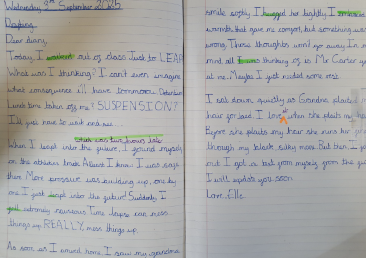 Wednesday 3rd September 2025
Dear diary,
Today, I walked out of class Just to LEAP
What was I thinking? I can't even imagine
what consequences ill have tomorrow. Detention
Lunch time taken off me? SUSPENSION?
I'll just have to wait and see...
When I leapt into the future, I found myself
on the athletics track. I knew I was safe
there. More pressure was building up, one by
one I just leapt into the future! Suddenly, I
felt extremely nauseous. Time lapse can mess
things up REALLY mess things up.
As soon as I arrived home I saw my grandma
smile softly. I hugged her tightly. I
warmth that gave me comfort, but something was
wrong. Those thoughts won't go away. In my
mind all I was thinking of is Mr Carter
at me. Maybe I just needed some rest.
I sat down quietly as Grandma plaited
hair for bed. I love it when she plaits my
Before she plaits my hair she runs her
through my black, silky mess. But then I
out I got a text from my
I will update you soon.
Love, Elle